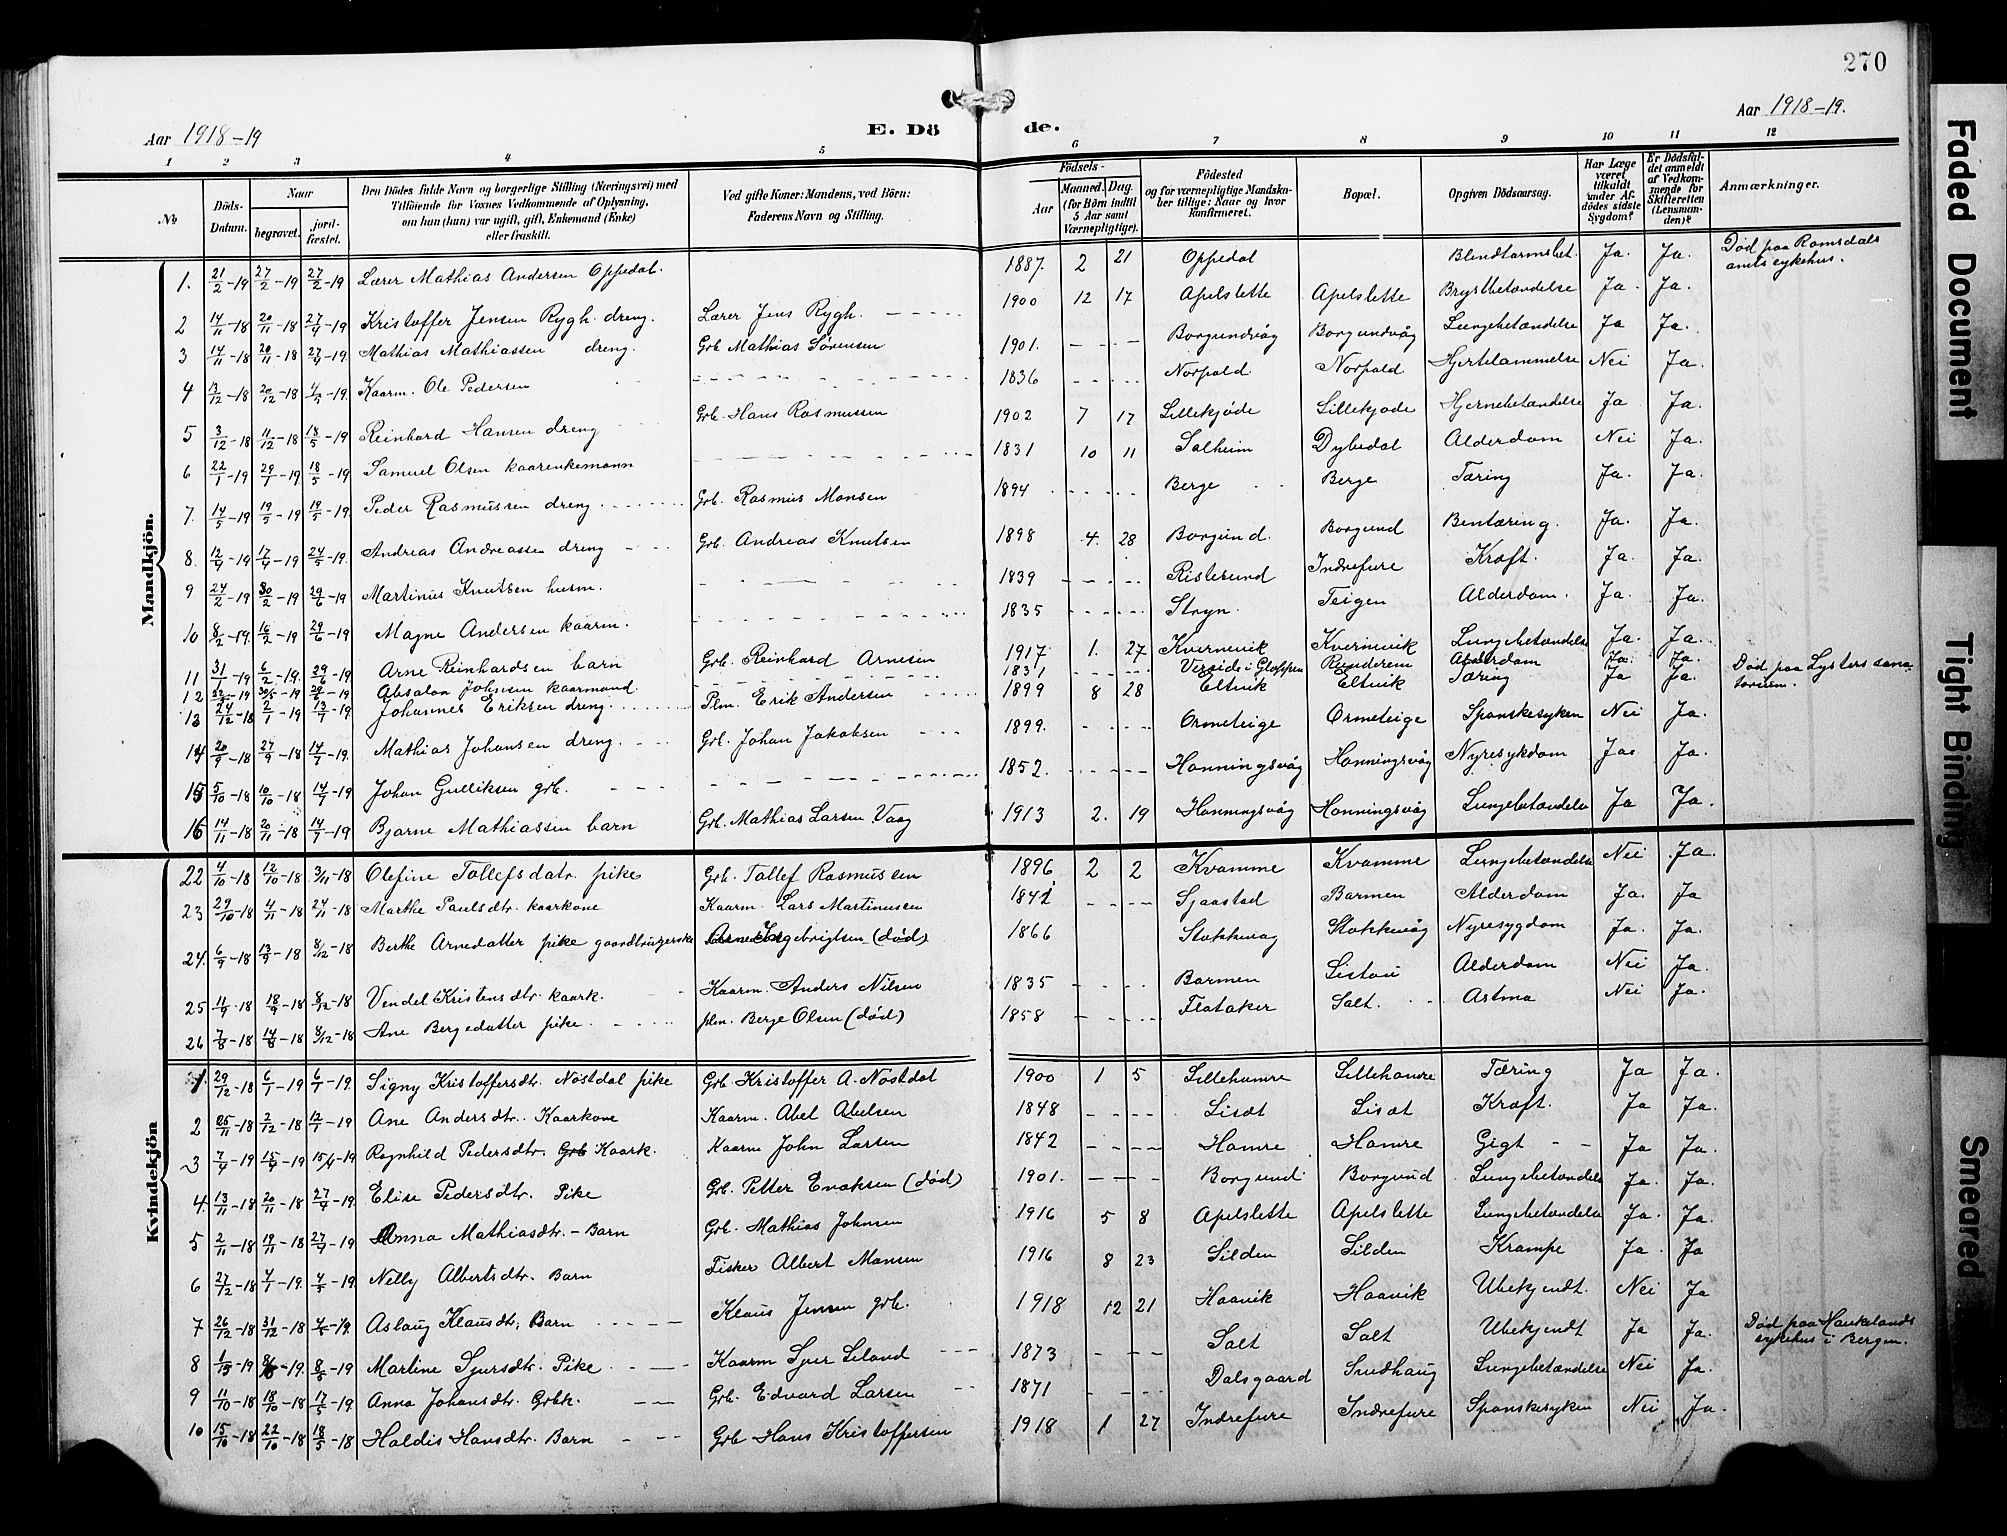 270
Aar 1918-19
E. Döde.
Aar 1918-19.
1 2 3 4 5 6 7 8 9 10 11 12
No
Döds-Datum.
Naar
begravet.
jordfæstet.
Den Dödes fulde Navn og borgerlige Stilling (Næringsvei) med Tilföiende for Voxnes Vedkommende af Oplysning, om han (hun) var ugift, gift, Enkemand (Enke) eller fraskilt.
Ved gifte Koner: Mandens, ved Börn: Faderens Navn og Stilling.
Födsels-
Aar
Maaned. Dag. (for Börn indtil 5 Aar samt Værnepligtige).
Födested og for værnepligtige Mandskaber tillige: Naar og hvor konfirmeret.
Bopæl.
Opgiven Dödsaarsag.
Har Læge været tilkaldt under Afdödes sidste Sygdom?
Er Dödsfaldet anmeldt af Vedkommende for Skifteretten (Lensmanden)?
Anmærkninger.
Mandkjön.
1. 21/2-19 27/2-19 27/2-19 Lærer Mathias Andersen Oppedal. 1887. 2 21 Oppedal Blindtarmsbet. Ja. Ja. Død paa Romsdals amts sykehus.
2 14/11-18 20/11-18 27/4-19 Kristoffer Jensen Rygh. dreng. Lærer Jens Rygh. 1900 12 17 Apelslette Apelslette Brystbetændelse Ja. Ja.
3 14/11-18 20/11-18 27/4-19. Mathias Mathiassen dreng. Grb Mathias Sørensen 1901. Borgundvåg Borgundvåg Lungebetændelse Ja Ja.
4 13/12-18 20/12-18 4/5-19. Kaarm. Ole Pedersen 1836 Norpold Norpold Hjertelammelse Nei Ja.
5 3/12-18 11/12-18 18/5-19 Reinhard Hansen dreng Grb. Hans Rasmussen 1902 7 17 Lillekjøde Lillekjøde Hjernebetændelse Ja Ja.
6 22/1-19 29/1-19 18/5-19 Samuel Olsen kaarenkemann 1831 10 11 Salheim Dybedal Alderdom Nei Ja.
7. 14/5-19 19/5-19 19/5-19. Peder Rasmussen dreng. Grb. Rasmus Monsen 1894 Berge Berge Tæring Ja. Ja.
8. 12/4-19 17/4-19 24/5-19. Andreas Andreassen dreng Grb. Andreas Knutsen 1898 4. 28 Borgund. Borgund Bentæring. Ja. Ja.
9 24/2-19 30/2-19 29/6-19 Martinus Knutsen husm. 1839 Rislesund Indrefure Kræft. Ja. Ja.
10 8/2-19. 16/2-19 29/6-19 Magne Andersen kaarm. 1835 Stryn. Teigen Alderdom. Ja. Ja.
11 31/1-19 6/2-19. 29/6-19 Arne Reinhardsen barn Grb. Reinhard Arnesen 1917. 1. 27 Kvernevik Kvernevik Lungebetændelse Ja. Ja.
12 Absalon Johnsen kaarmand. 1831 i Gloppen Runderem Alderdom Ja. Ja.
13 24/12-18 2/1-19 13/7-19 Johannes Eriksen dreng. Plm. Erik Andersen 1899 8 28 Eltvik Eltvik Tæring Ja Ja. Død paa Lysters sanatorium.
14 20/9-18 27/9-18 14/7-19. Mathias Johansen dreng. Grb. Johan Jakobsen 1899. Ormeteige Ormeteige Spanskesyken Nei Ja.
15 5/10-18 10/10-18 14/7-19 Johan Gulliksen grb. 1852. Honningsvåg Honningsvåg Nyresykdom Ja. Ja.
16 14/11-18 20/11-18 14/7-19 Bjarne Mathiassen barn Grb. Mathias Larsen Vaag 1913 2. 19 Honningsvåg Honningsvåg Lungebetændelse Ja Ja.
22 4/10-18 12/10-18 3/11-18 Olefine Tollefsdatr. pike Grb. Tollef Rasmussen 1896 2 2 Kvamme Kvamme Lungebetændelse Nei Ja.
23 29/10-18 4/11-18 24/11-18 Marthe Paulsdtr. kaarkone Kaarm. Lars Martinussen 1842 Sjaastad Barmen Alderdom Ja. Ja
24. 6/9-18 13/9-18 8/12-18 Berthe Arnedatter pike Arne Ingebrigtsen (død) 1866 Stokkevag Stokkevåg Nyresygdom Ja. Ja.
25 11/9-18 18/9-18 8/12-18 Vendel Kristensdtr. kaark. Kaarm. Anders Nilsen 1835 Barmen Listou Alderdom Nei Ja.
26 7/8-18 14/8-18 8/12-18 Ane Bergedatter pike. plm. Berge Olsen (død) 1858 Flataker Salt. Astma Nei Ja.
Kvindekjön
1. 29/12-18 6/1-19 6/1-19. Signy Kristoffersdtr. Nöstdal pike Grb. Kristoffer A. Nøstdal 1900 1 5 Lillehamre Lillehamre Tæring Ja Ja.
2 25/11-18 2/12-18 12/1-19 Ane Andersdtr. Kaarkone Kaarm. Abel Abelsen 1848 Lisæt Lisæt Kræft. Ja Ja.
3 7/4-19 15/4-19 15/4-19 Ragnhild Pedersdtr. Grb Kaark. Kaarm John Larsen 1842 Hamre Hamre Gigt Ja Ja.
4. 13/11-18 20/11-18 27/4-19. Elise Pedersdtr. Pike Grb. Petter Enoksen (død) 1901. Borgund Borgund Lungebetændelse Ja. Ja.
5 2/11-18 19/11-18 27/4-19 Anna Mathiasdtr. - Barn Grb. Mathias Johnsen 1916 5 8 Apelslette Apelslette Lungebetændelse Ja. Ja.
6 27/12-18 4/1-19. 4/5-19 Nelly Albertsdtr. Barn Fisker Albert Monsen 1916 8 23 Silden Silden Krampe Ja. Ja
7 26/12-18 31/12-18 Aslaug Klausdtr. Barn Klaus Jensen grb. 1918 12 21 Haavik Haavik Ubekjendt. Nei Ja
8 Martine Sjursdtr. Pike Kaarm Sjur Leland 1873 Salt Salt Ubekjendt Ja Ja. Død paa Haukelands sykehus i Bergen.
9 11/10-18 18/10-18 17/5-19. Anna Johansdtr. Grbk. Grb. Edvard Larsen 1871 Dalsgaard Smidhaug Lungebetændelse Nei Ja.
10 15/10-18 22/10-18 18/5-18 Haldis Hansdtr. Barn Grb Hans Kristoffersen 1918 1 27 Indrefure Indrefure Spanskesyken Nei Ja.
Faded Document
Tight Binding
Smeared